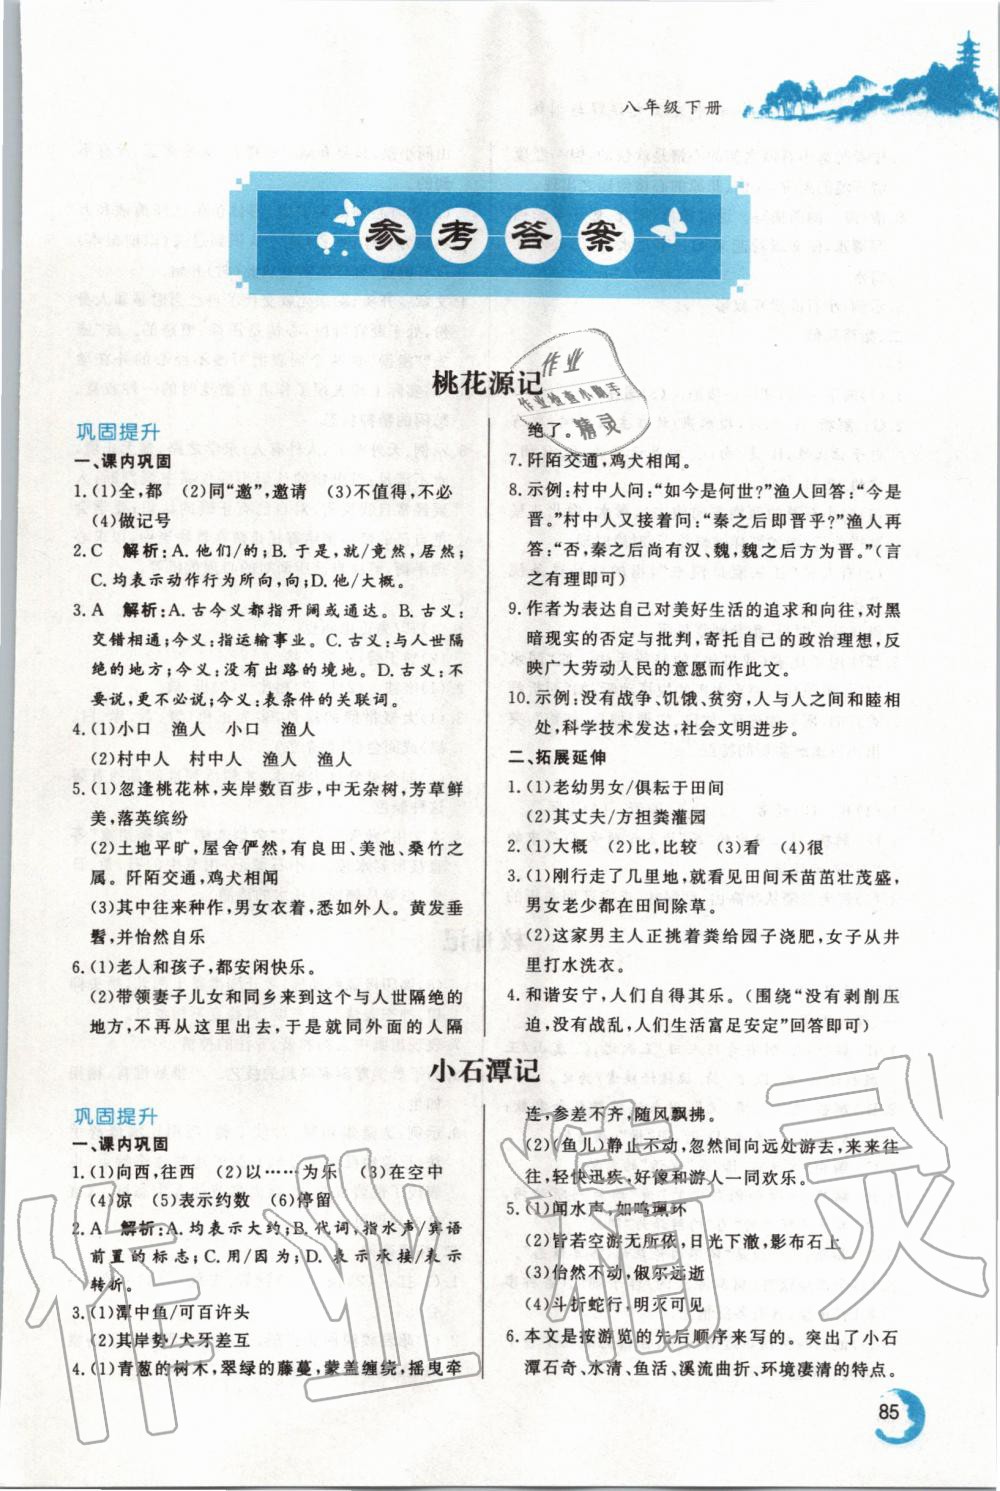 八年级下册
参考答案
桃花源记
巩固提升
一、课内巩固
1.(1)全,都　(2)同“邀”,邀请　(3)不值得,不必
(4)做记号
2.C　解析:A.他们/的;B.于是,就/竟然,居然;
C.均表示动作行为所向,向;D.他/大概。
3.A　解析:A.古今义都指开阔或通达。B.古义:
交错相通;今义:指运输事业。C.古义:与人世隔
绝的地方;今义:没有出路的境地。D.古义:不
要说,更不必说;今义:表条件的关联词。
4.(1)小口　渔人　小口　渔人
(2)村中人　村中人　渔人　渔人
5.(1)忽逢桃花林,夹岸数百步,中无杂树,芳草鲜
美,落英缤纷
(2)土地平旷,屋舍俨然,有良田、美池、桑竹之
属。阡陌交通,鸡犬相闻
(3)其中往来种作,男女衣着,悉如外人。黄发垂
髫,并怡然自乐
6.(1)老人和孩子,都安闲快乐。
(2)带领妻子儿女和同乡来到这个与人世隔绝的
地方,不再从这里出去,于是就同外面的人隔
绝了。
7.阡陌交通,鸡犬相闻。
8.示例:村中人问:“如今是何世?”渔人回答:“今是
晋。”村中人又接着问:“秦之后即晋乎?”渔人再
答:“否,秦之后尚有汉、魏,魏之后方为晋。”(言
之有理即可)
9.作者为表达自己对美好生活的追求和向往,对黑
暗现实的否定与批判,寄托自己的政治理想,反
映广大劳动人民的意愿而作此文。
10.示例:没有战争、饥饿、贫穷,人与人之间和睦相
处,科学技术发达,社会文明进步。
二、拓展延伸
1.(1)老幼男女/俱耘于田间
(2)其丈夫/方担粪灌园
2.(1)大概　(2)比,比较　(3)看　(4)很
3.(1)刚行走了几里地,就看见田间禾苗茁壮茂盛,
男女老少都在田间除草。
(2)这家男主人正挑着粪给园子浇肥,女子从井
里打水洗衣。
4.和谐安宁,人们自得其乐。(围绕“没有剥削压
迫,没有战乱,人们生活富足安定”回答即可)
小石潭记
巩固提升
一、课内巩固
1.(1)向西,往西　(2)以……为乐　(3)在空中
(4)凉　(5)表示约数　(6)停留
2.A　解析:A.均表示大约;B.代词,指水声/宾语
前置的标志;C.用/因为;D.表示承接/表示
转折。
3.(1)潭中鱼/可百许头
(2)其岸势/犬牙差互
4.(1)青葱的树木,翠绿的藤蔓,蒙盖缠绕,摇曳牵
连,参差不齐,随风飘拂。
(2)(鱼儿)静止不动,忽然间向远处游去,来来往
往,轻快迅疾,好像和游人一同欢乐。
5.(1)闻水声,如鸣珮环
(2)皆若空游无所依,日光下澈,影布石上
(3)佁然不动,俶尔远逝
(4)斗折蛇行,明灭可见
6.本文是按游览的先后顺序来写的。突出了小石
潭石奇、水清、鱼活、溪流曲折、环境凄清的特点。
85
作业
作业检查小助手
精灵
作业精灵